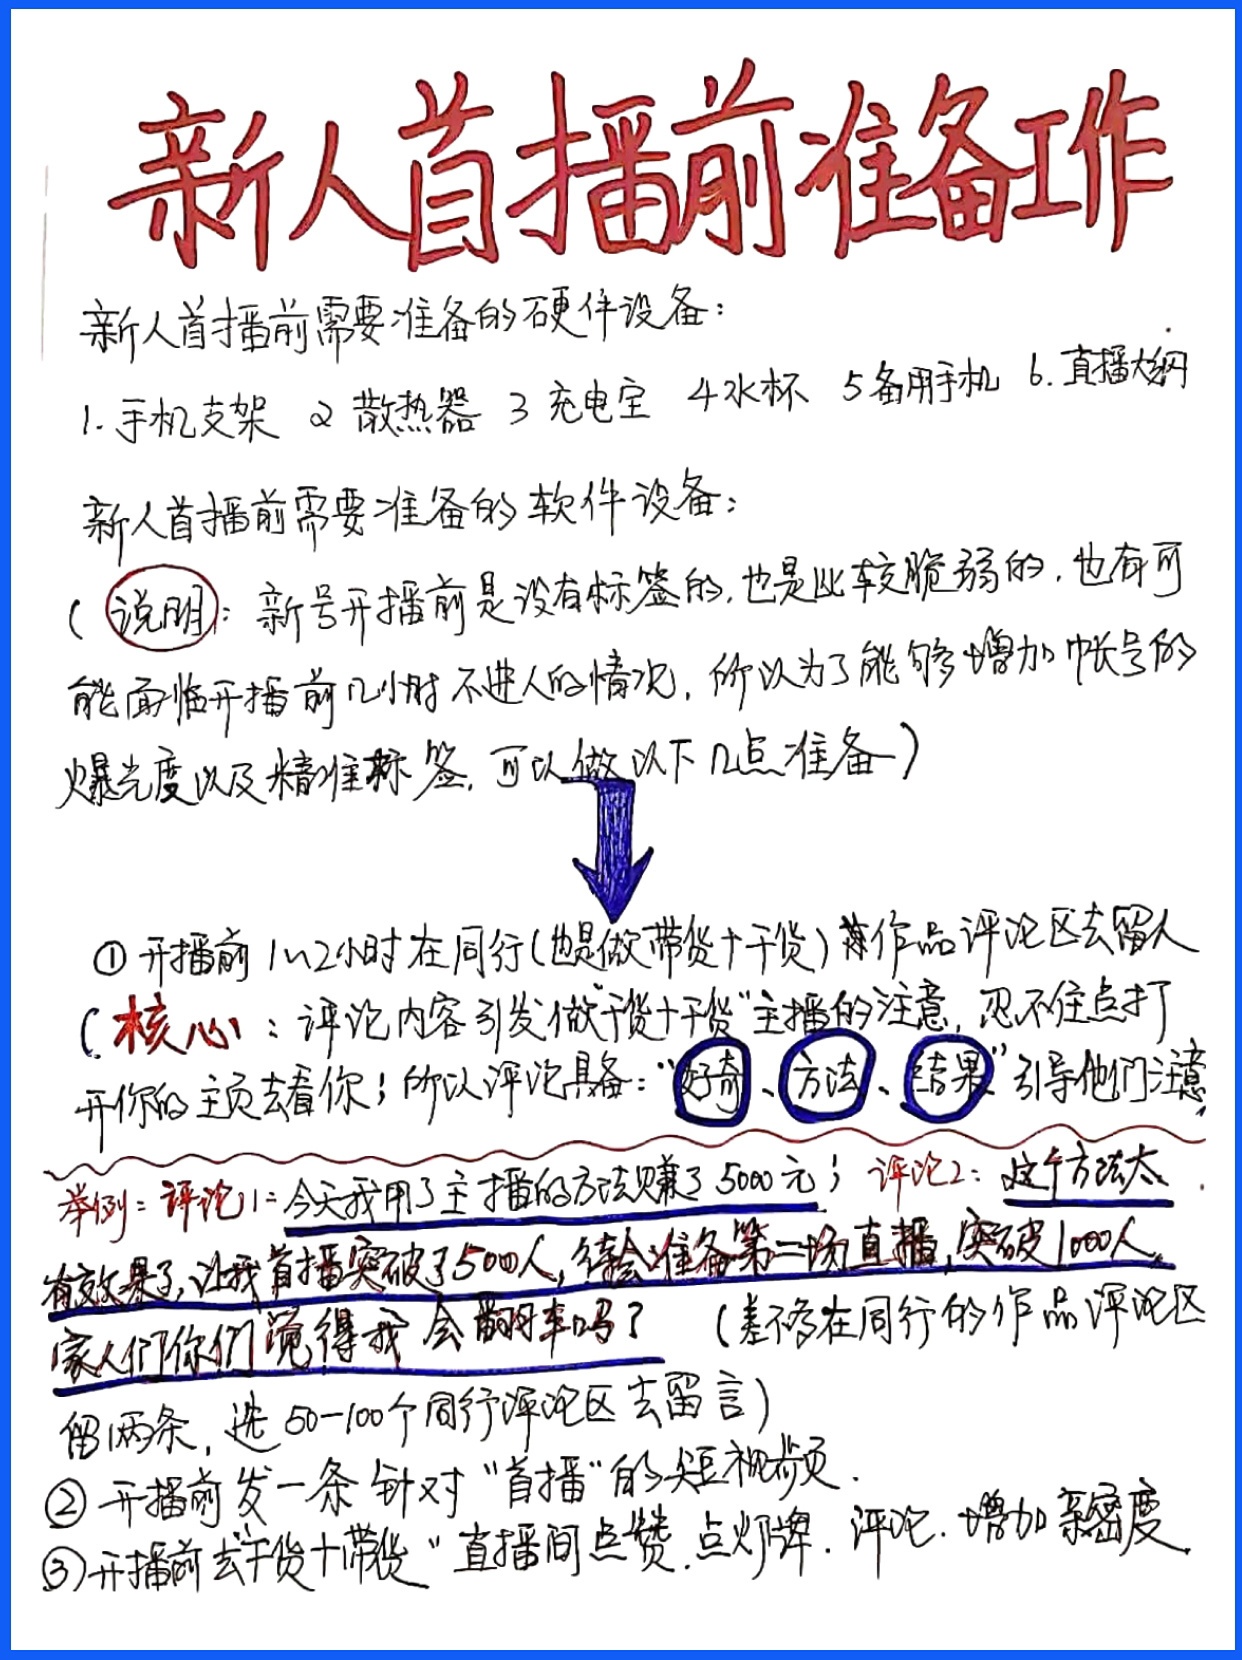 新人首播前准备工作
新人首播前需要准备的硬件设备：
1.手机支架 2 散热器 3 充电宝 4水杯 5备用手机 6.直播大纲
新人首播前需要准备的软件设备：
(说明：新号开播前是没有标签的.也是比较脆弱的.也有可
能面临开播前几小时不进人的情况，所以为了能够增加帐号的
爆光度以及精准标签，可以做以下几点准备)
①开播前1~2小时在同行(也是做带货+干货)作品评论区去留人
(核心：评论内容引发做“干货+干货”主播的注意，忍不住点打
开你的主页去看你；所以评论具备：“好奇、方法、结果”引导他们注意，
举例：评论1：今天我用了主播的方法赚了5000元；评论2：这个方法太
有效果了，让我首播突破了500人，待会准备第二场直播，突破1000人，
家人们你们觉得我会翻车吗？(差不多在同行的作品评论区
留两条，选50-100个同行评论区去留言)
②开播前发一条针对“首播”的短视频.
③开播前去“干货+带货”直播间点赞.点灯牌.评论.增加亲密度.